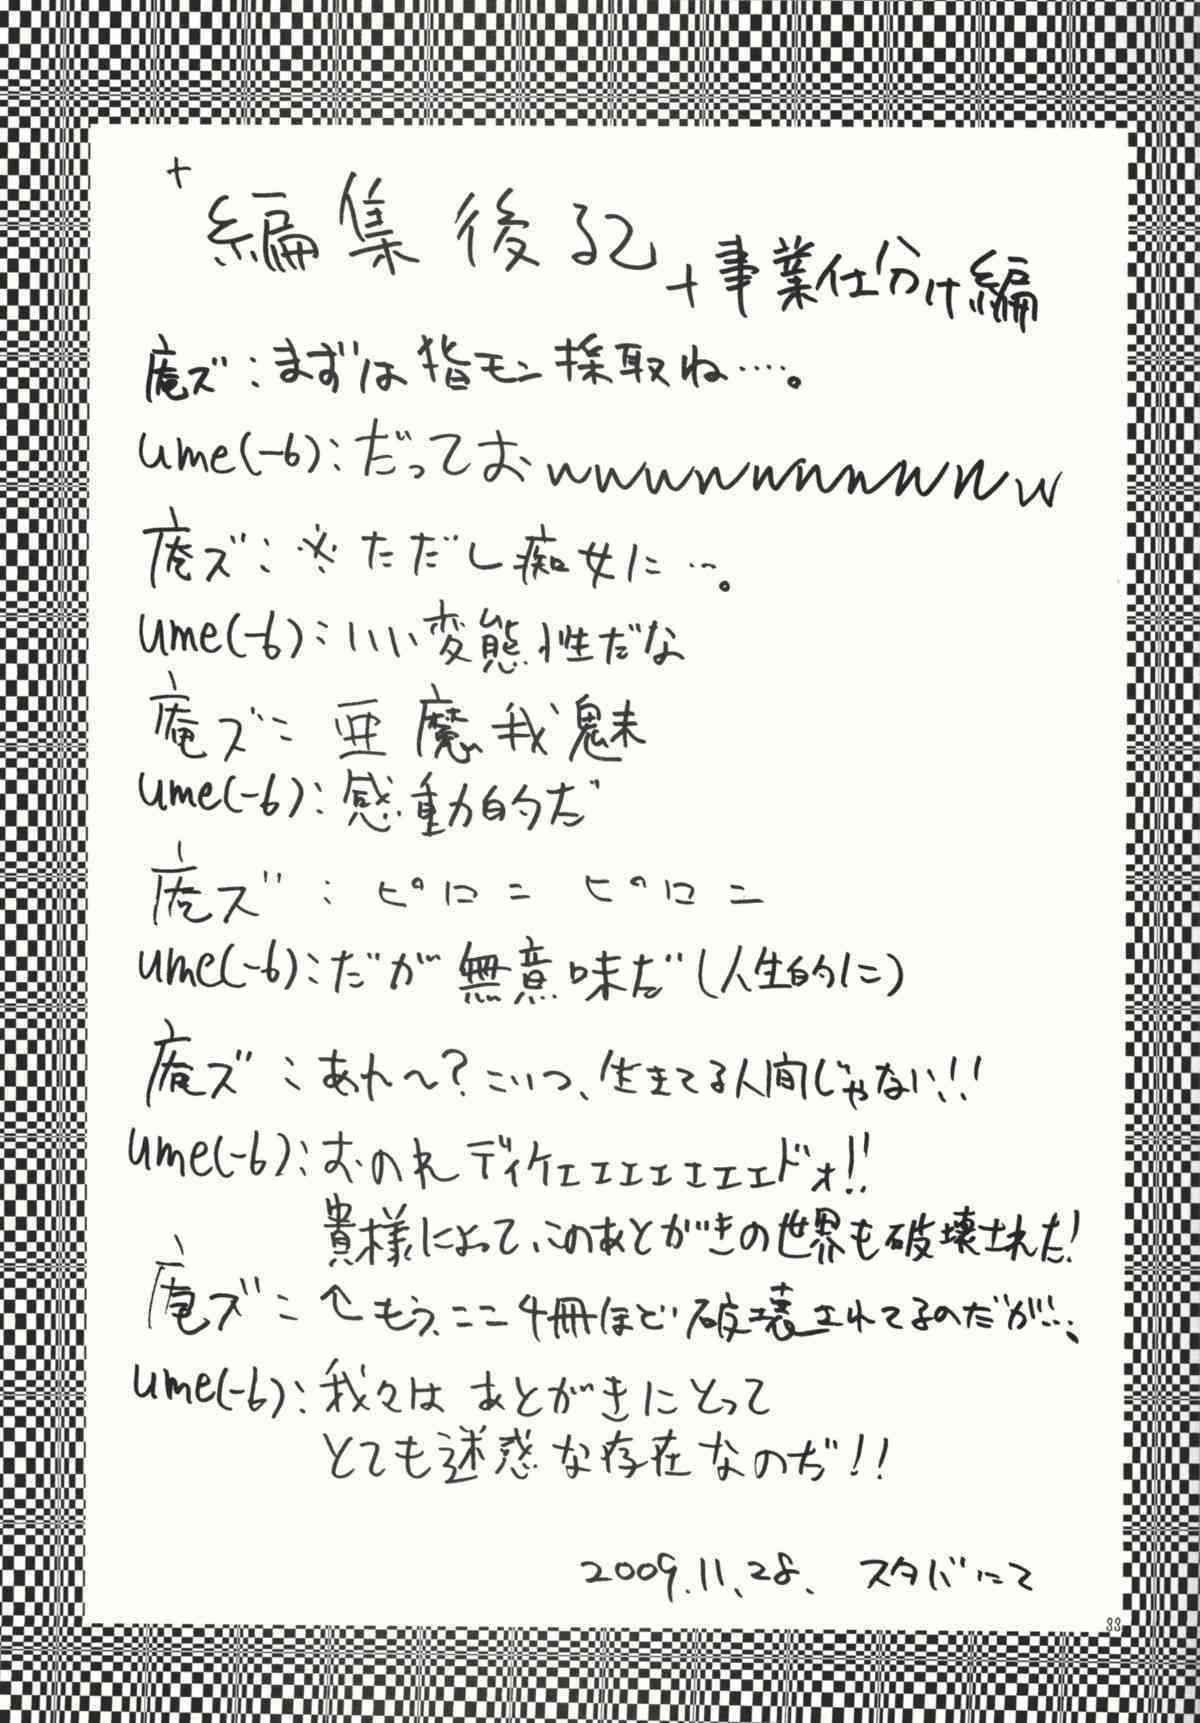 +
編集後記
+事業仕分け編
庵ズ:まずは指モン採取ね‥‥。
ume(-6):だっておwwwwwwwwwww
庵ズ:※ただし痴女に…。
ume(-6):いい変態性だな
庵ズ:亜魔我魅
ume(-6):感動的だ
庵ズ:ピロニ ピロニ
ume(-6):だが無意味だ(人生的に)
庵ズ:あれ〜?こいつ、生きてる人間じゃない!!
ume(-6):おのれディケェェェェェェェドォ!!
貴様によって、このあとがきの世界も破壊された!
庵ズ:↑もう、ここ4冊ほど破壊されてるのだが…。
ume(-6):我々はあとがきにとって
とても迷惑な存在なのだ!!
2009.11.28. スタバにて
33